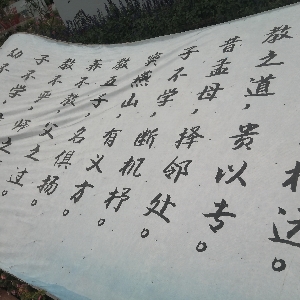 相远。
教之道，贵以专。
昔孟母，择邻处。
子不学，断机杼。
窦燕山，有义方。
教五子，名俱扬。
养不教，父之过。
教不严，师之
子不学，
幼不学，